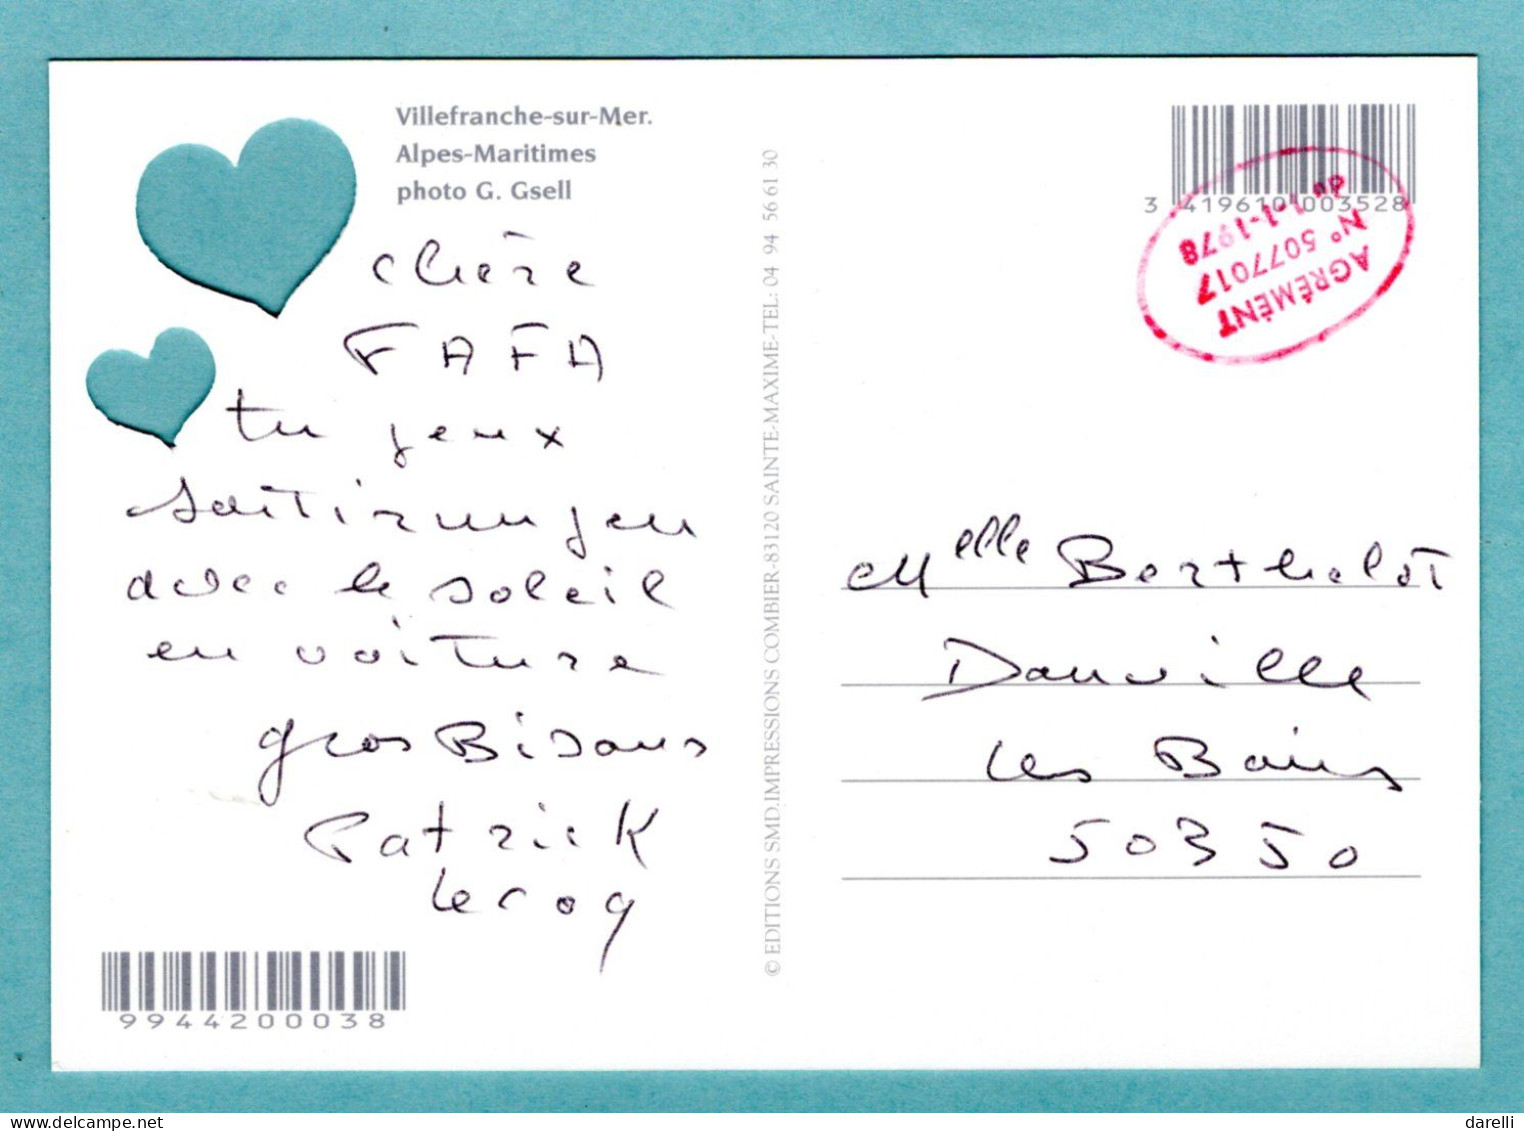 Villefranche-sur-Mer.
Alpes-Maritimes
photo G. Gsell
chère
FAFA
tu peux
sortir un peu
avec le soleil
en voiture
gros Bisous
Patrick
Lecoq
9944200038
© EDITIONS SMD.IMPRESSIONS COMBIER-83120 SAINTE-MAXIME-TEL: 04 94 56 61 30
3 419610 003528
AGRÉMENT
N° 5077017
du 1-1-1978
Melle Bertholot
Donville
les Bains
50350
darelli